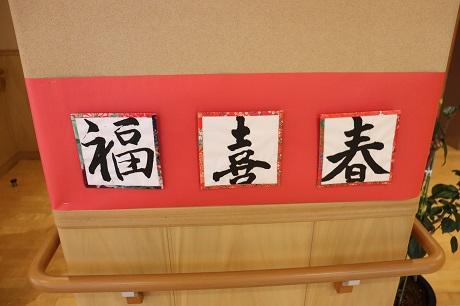 福 喜 春